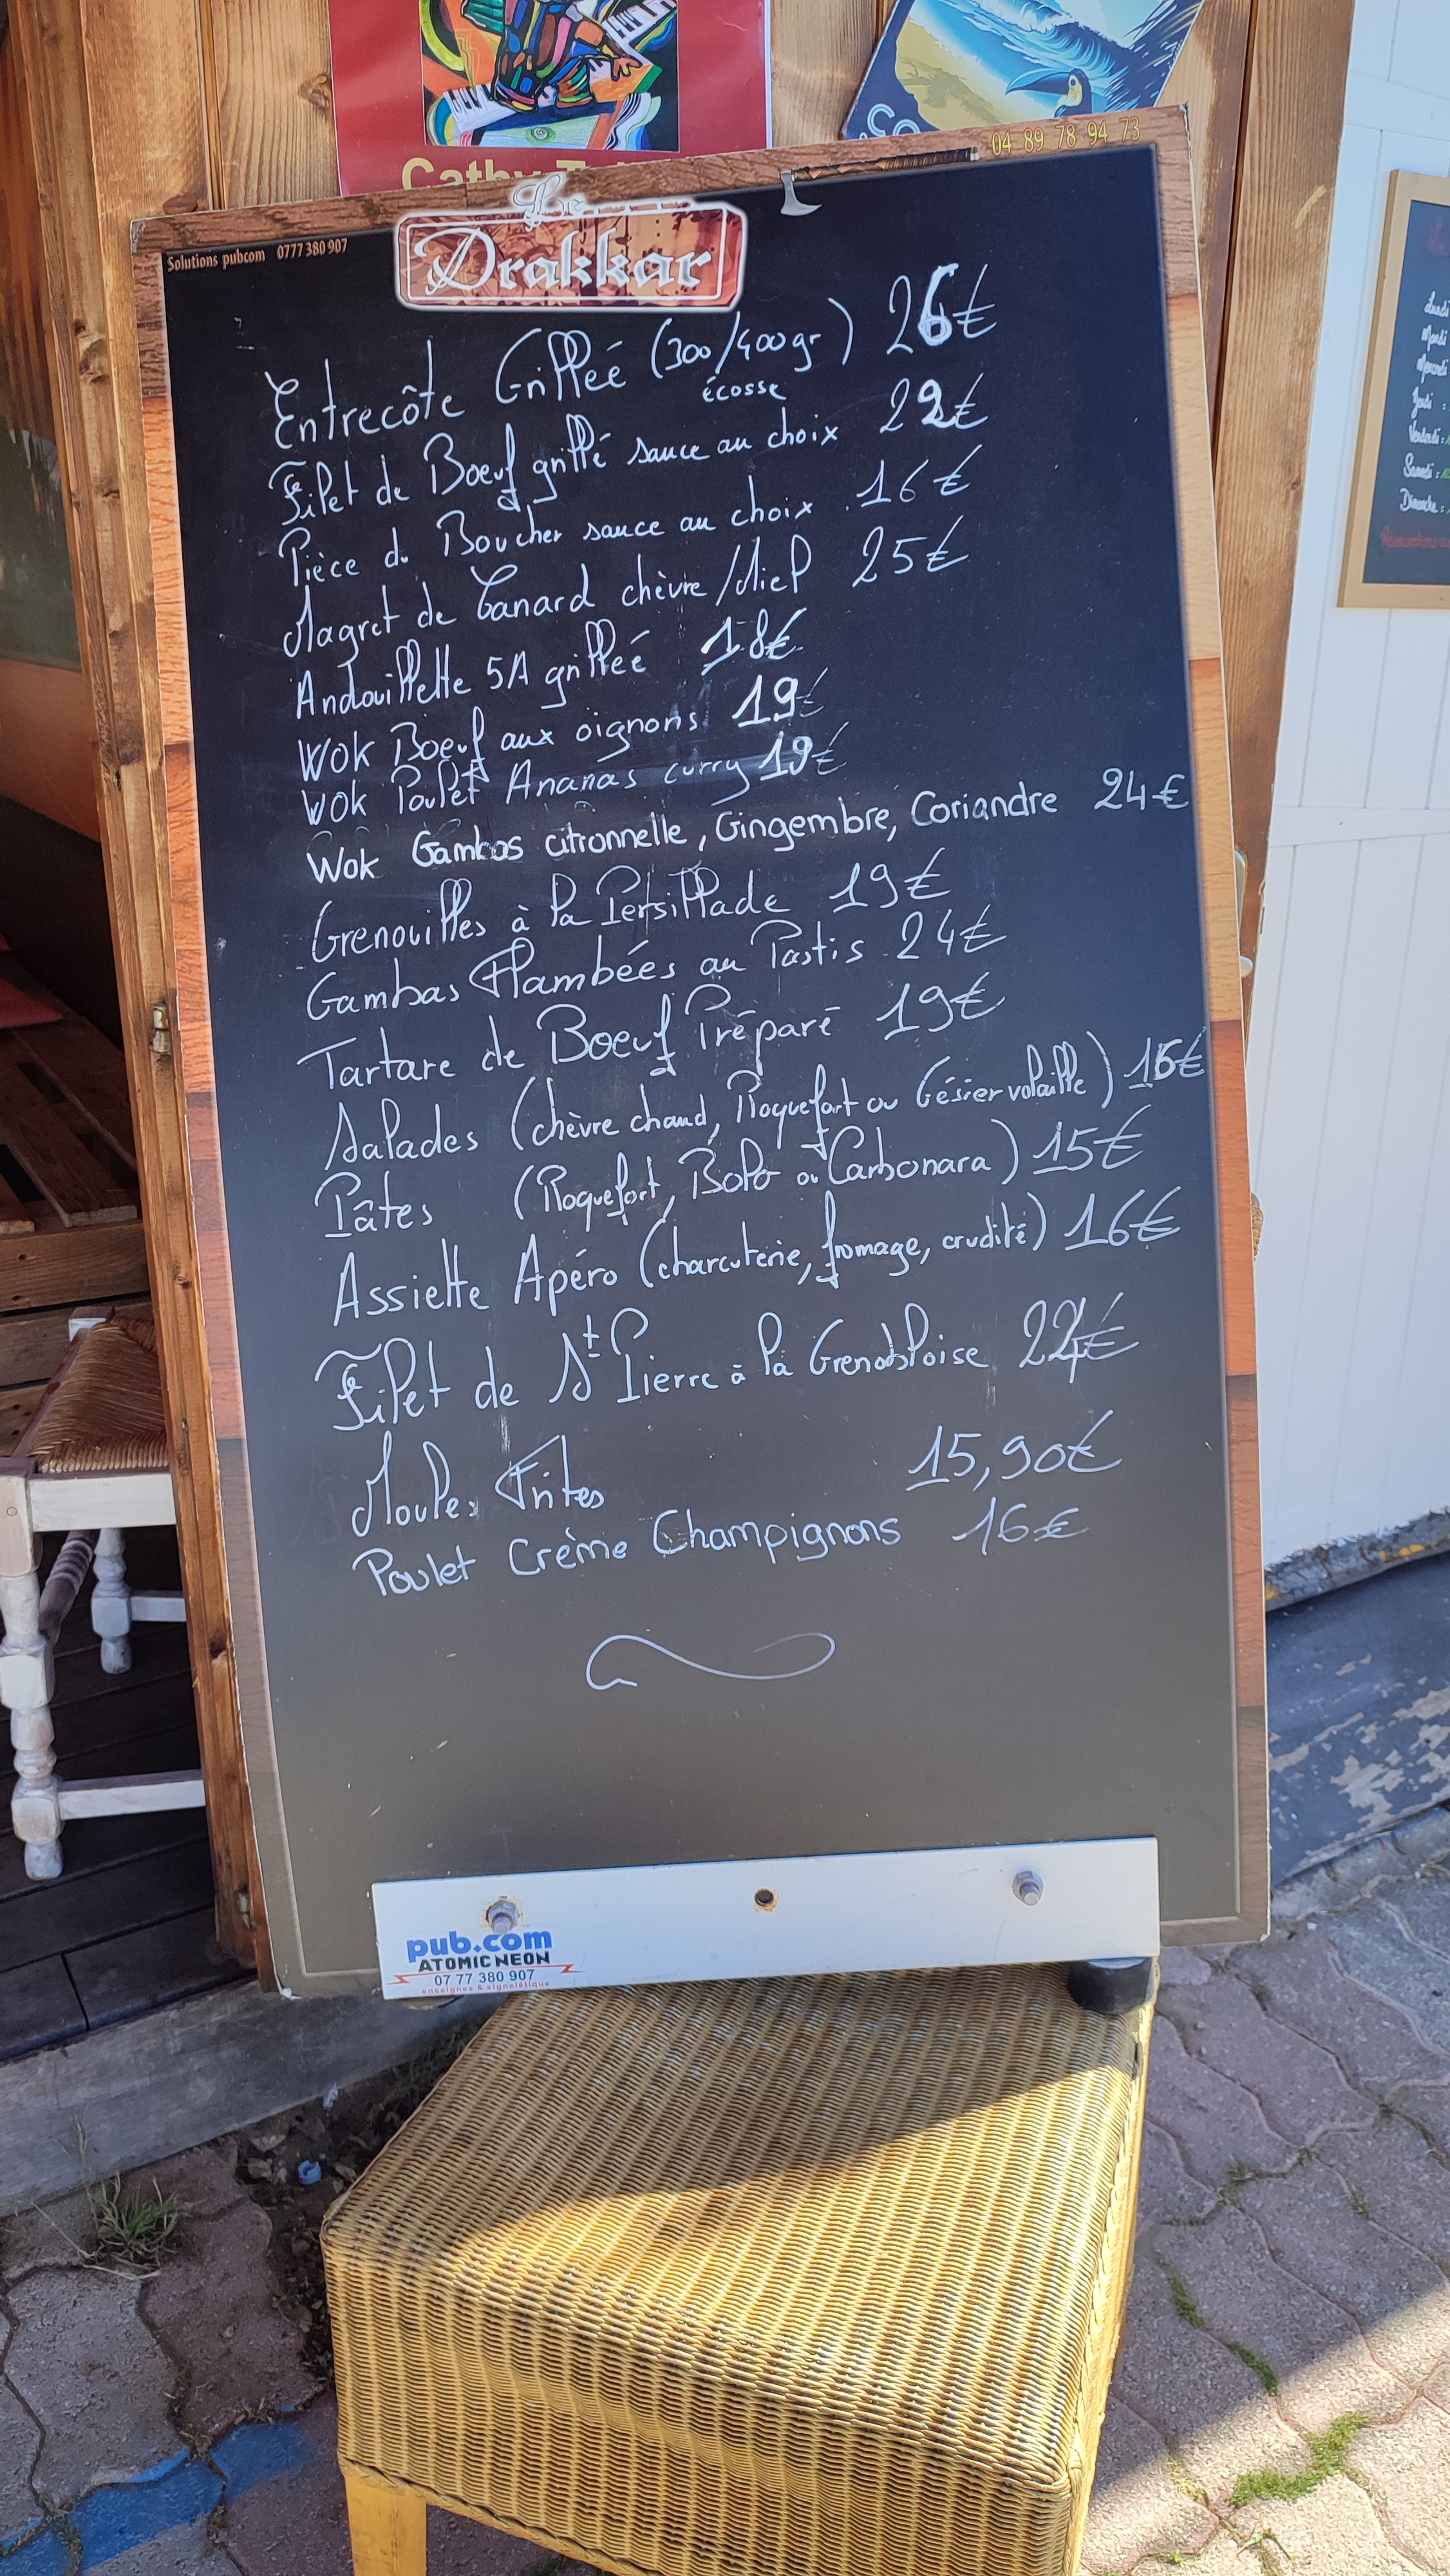 Cathy
04 89 78 94 73
Solutions pubcom 0777 380 907
Le
Drakkar
Entrecôte Grillée (300/400gr) 26€
écosse
Filet de Boeuf grillé sauce au choix 22€
Pièce du Boucher sauce au choix 16€
Magret de Canard chèvre/Miel 25€
Andouillette 5A grillée 18€
Wok Boeuf aux oignons 19€
Wok Poulet Ananas curry 19€
Wok Gambas citronnelle, Gingembre, Coriandre 24€
Grenouilles à la Persillade 19€
Gambas Flambées au Pastis 24€
Tartare de Boeuf Préparé 19€
Salades (chèvre chaud, Roquefort ou Gésier volaille) 16€
Pâtes (Roquefort, Bolo ou Carbonara) 15€
Assiette Apéro (charcuterie, fromage, crudité) 16€
Filet de St Pierre à la Grenobloise 24€
Moules Frites 15,90€
Poulet Crème Champignons 16€
pub.com
ATOMIC NEON
07 77 380 907
enseignes & signalétique
Lundi
Mardi
Mercredi
Jeudi :
Vendredi :
Samedi :
Dimanche :